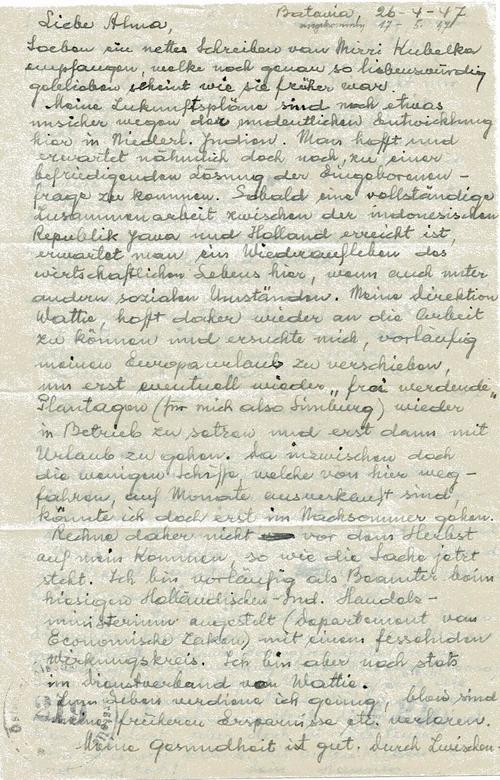 Batavia, 26-4-47
Liebe Alma, angekommen 17-5-47
Soeben ein nettes Schreiben van Mirri Kubelka
empfangen, welke noch genau so liebenswürdig
geblieben scheint wie sie früher war.
Meine Zukunftspläne sind noch etwas
unsicher wegen der undeutlichen Entwicklung
hier in Niederl. Indien. Man hofft und
erwartet nähmlich doch noch, zu einer
befriedigenden Lösung der Eingeborenen-
frage zu kommen. Sobald eine vollständige
Zusammenarbeit zwischen der indonesischen
Republik Java und Holland erreicht ist,
erwartet man ein Wiederaufleben des
wirtschaftlichen Lebens hier, wenn auch unter
andern sozialen Umständen. Meine Direktion
Wattie, hofft daher wieder an die Arbeit
zu können und ersuchte mich, vorläufig
meinen Europaurlaub zu verschieben,
um erst eventuell wieder „frei werdende"
Plantagen (für mich also Limburg) wieder
in Betrieb zu setzen und erst dann mit
Urlaub zu gehen. Da inzwischen doch
die wenigen Schiffe, welche von hier weg-
fahren, auf Monate ausverkauft sind,
könnte ich doch erst im Nachsommer gehen.
Rechne daher nicht vor dem Herbst
auf mein Kommen, so wie die Sache jetzt
steht. Ich bin vorläufig als Beamter beim
hiesigen Holländischen-Ind. Handels-
ministerium angestelt (Departement van
Economische Zaken) mit einem fesselnden
Wirkungskreis. Ich bin aber noch stets
im Dienstverband von Wattie.
Zum Leben verdiene ich genug, blow sind
meine früheren Ersparnisse etc. verloren.
Meine Gesundheit ist gut. Durch Zwischen-